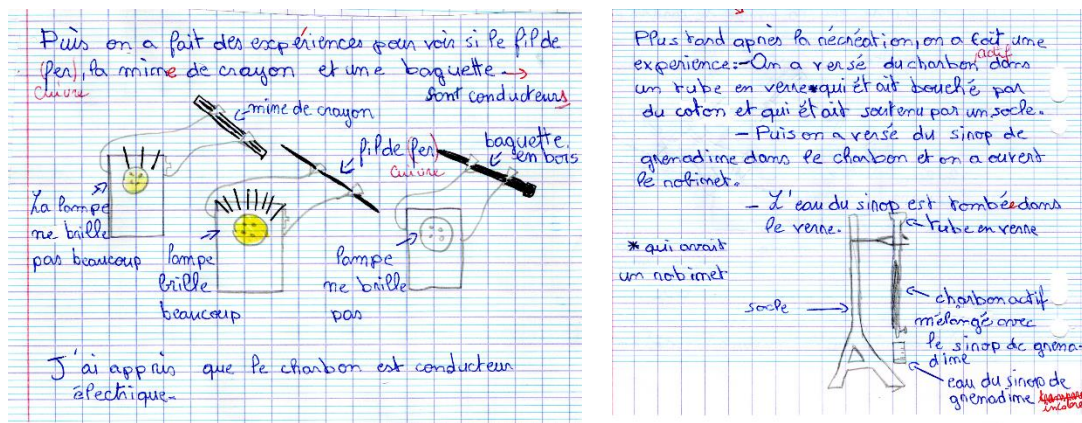 Puis on a fait des expériences pour voir si le fil de
(fer), la mine de crayon et une baguette →
cuivre
sont conducteurs
mine de crayon
fil de (fer)
cuivre
baguette
en bois
La lampe
ne brille
pas beaucoup
lampe
brille
beaucoup
lampe
ne brille
pas
J'ai appris que le charbon est conducteur
électrique.
Plus tard après la récréation, on a fait une
actif
experience: - On a versé du charbon dans
un tube en verre* qui était bouché par
du coton et qui était soutenu par un socle.
- Puis on a versé du sirop de
grenadine dans le charbon et on a ouvert
le robinet.
- L'eau du sirop est tombée dans
le verre.
* qui avait
un robinet
tube en verre
socle
charbon actif
mélangé avec
le sirop de grena-
dine
eau du sirop de
grenadine
incolore